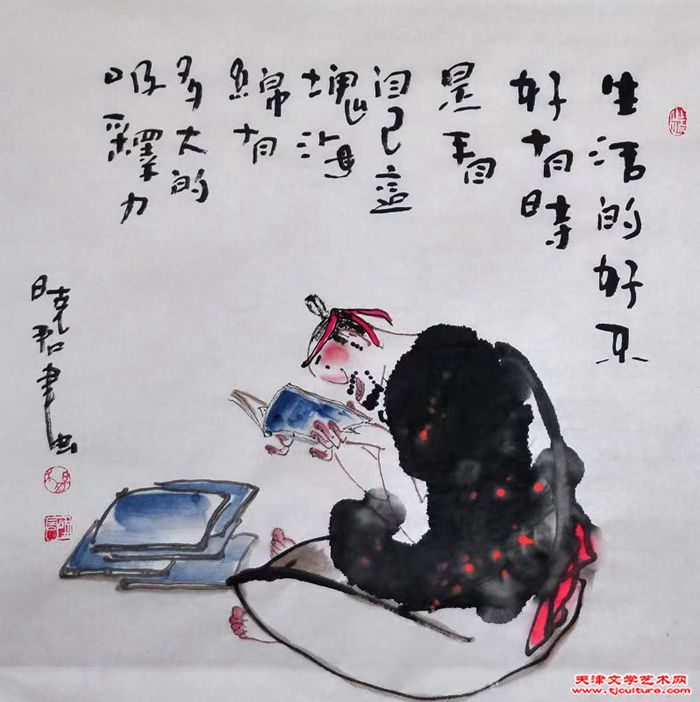 生活的好不
好有時
是看
自己這
塊海
綿有
多大的
吸釋力
天津文学艺术网
www.tjculture.com